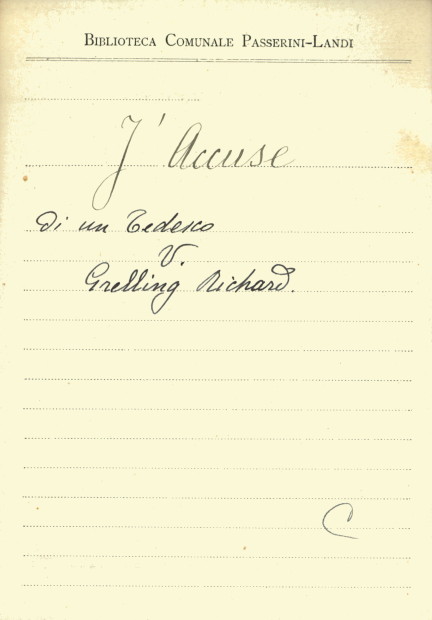 Biblioteca Comunale Passerini-Landi
J' Accuse
di un Tedesco
V.
Grelling Richard.
C